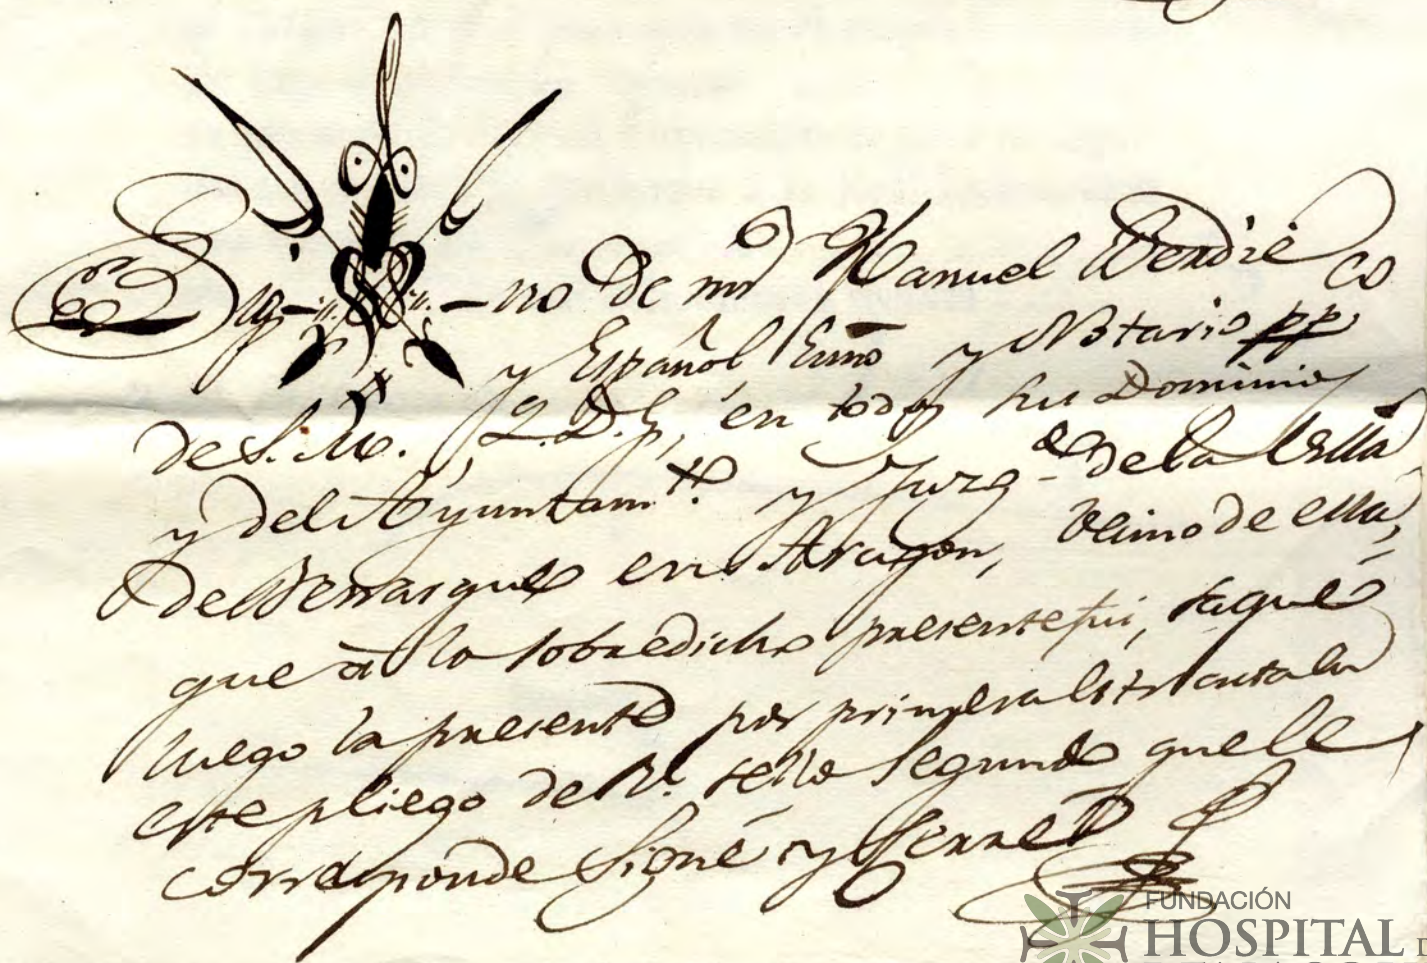 Sig-no De mi Manuel Vendico
y Español Essno y Notario pp.
de S. M. Q. D. G, en todos sus Dominios
y del Ayuntamto. y Juzgdo de la Villa
de Benasque en Aragon, Vecino de ella,
que à lo sobredicho presente fui, saque
luego la presente por primera extracta en
este pliego de Rl. sello segundo que le
corresponde Signé y Cerre
FUNDACIÓN
HOSPITAL D